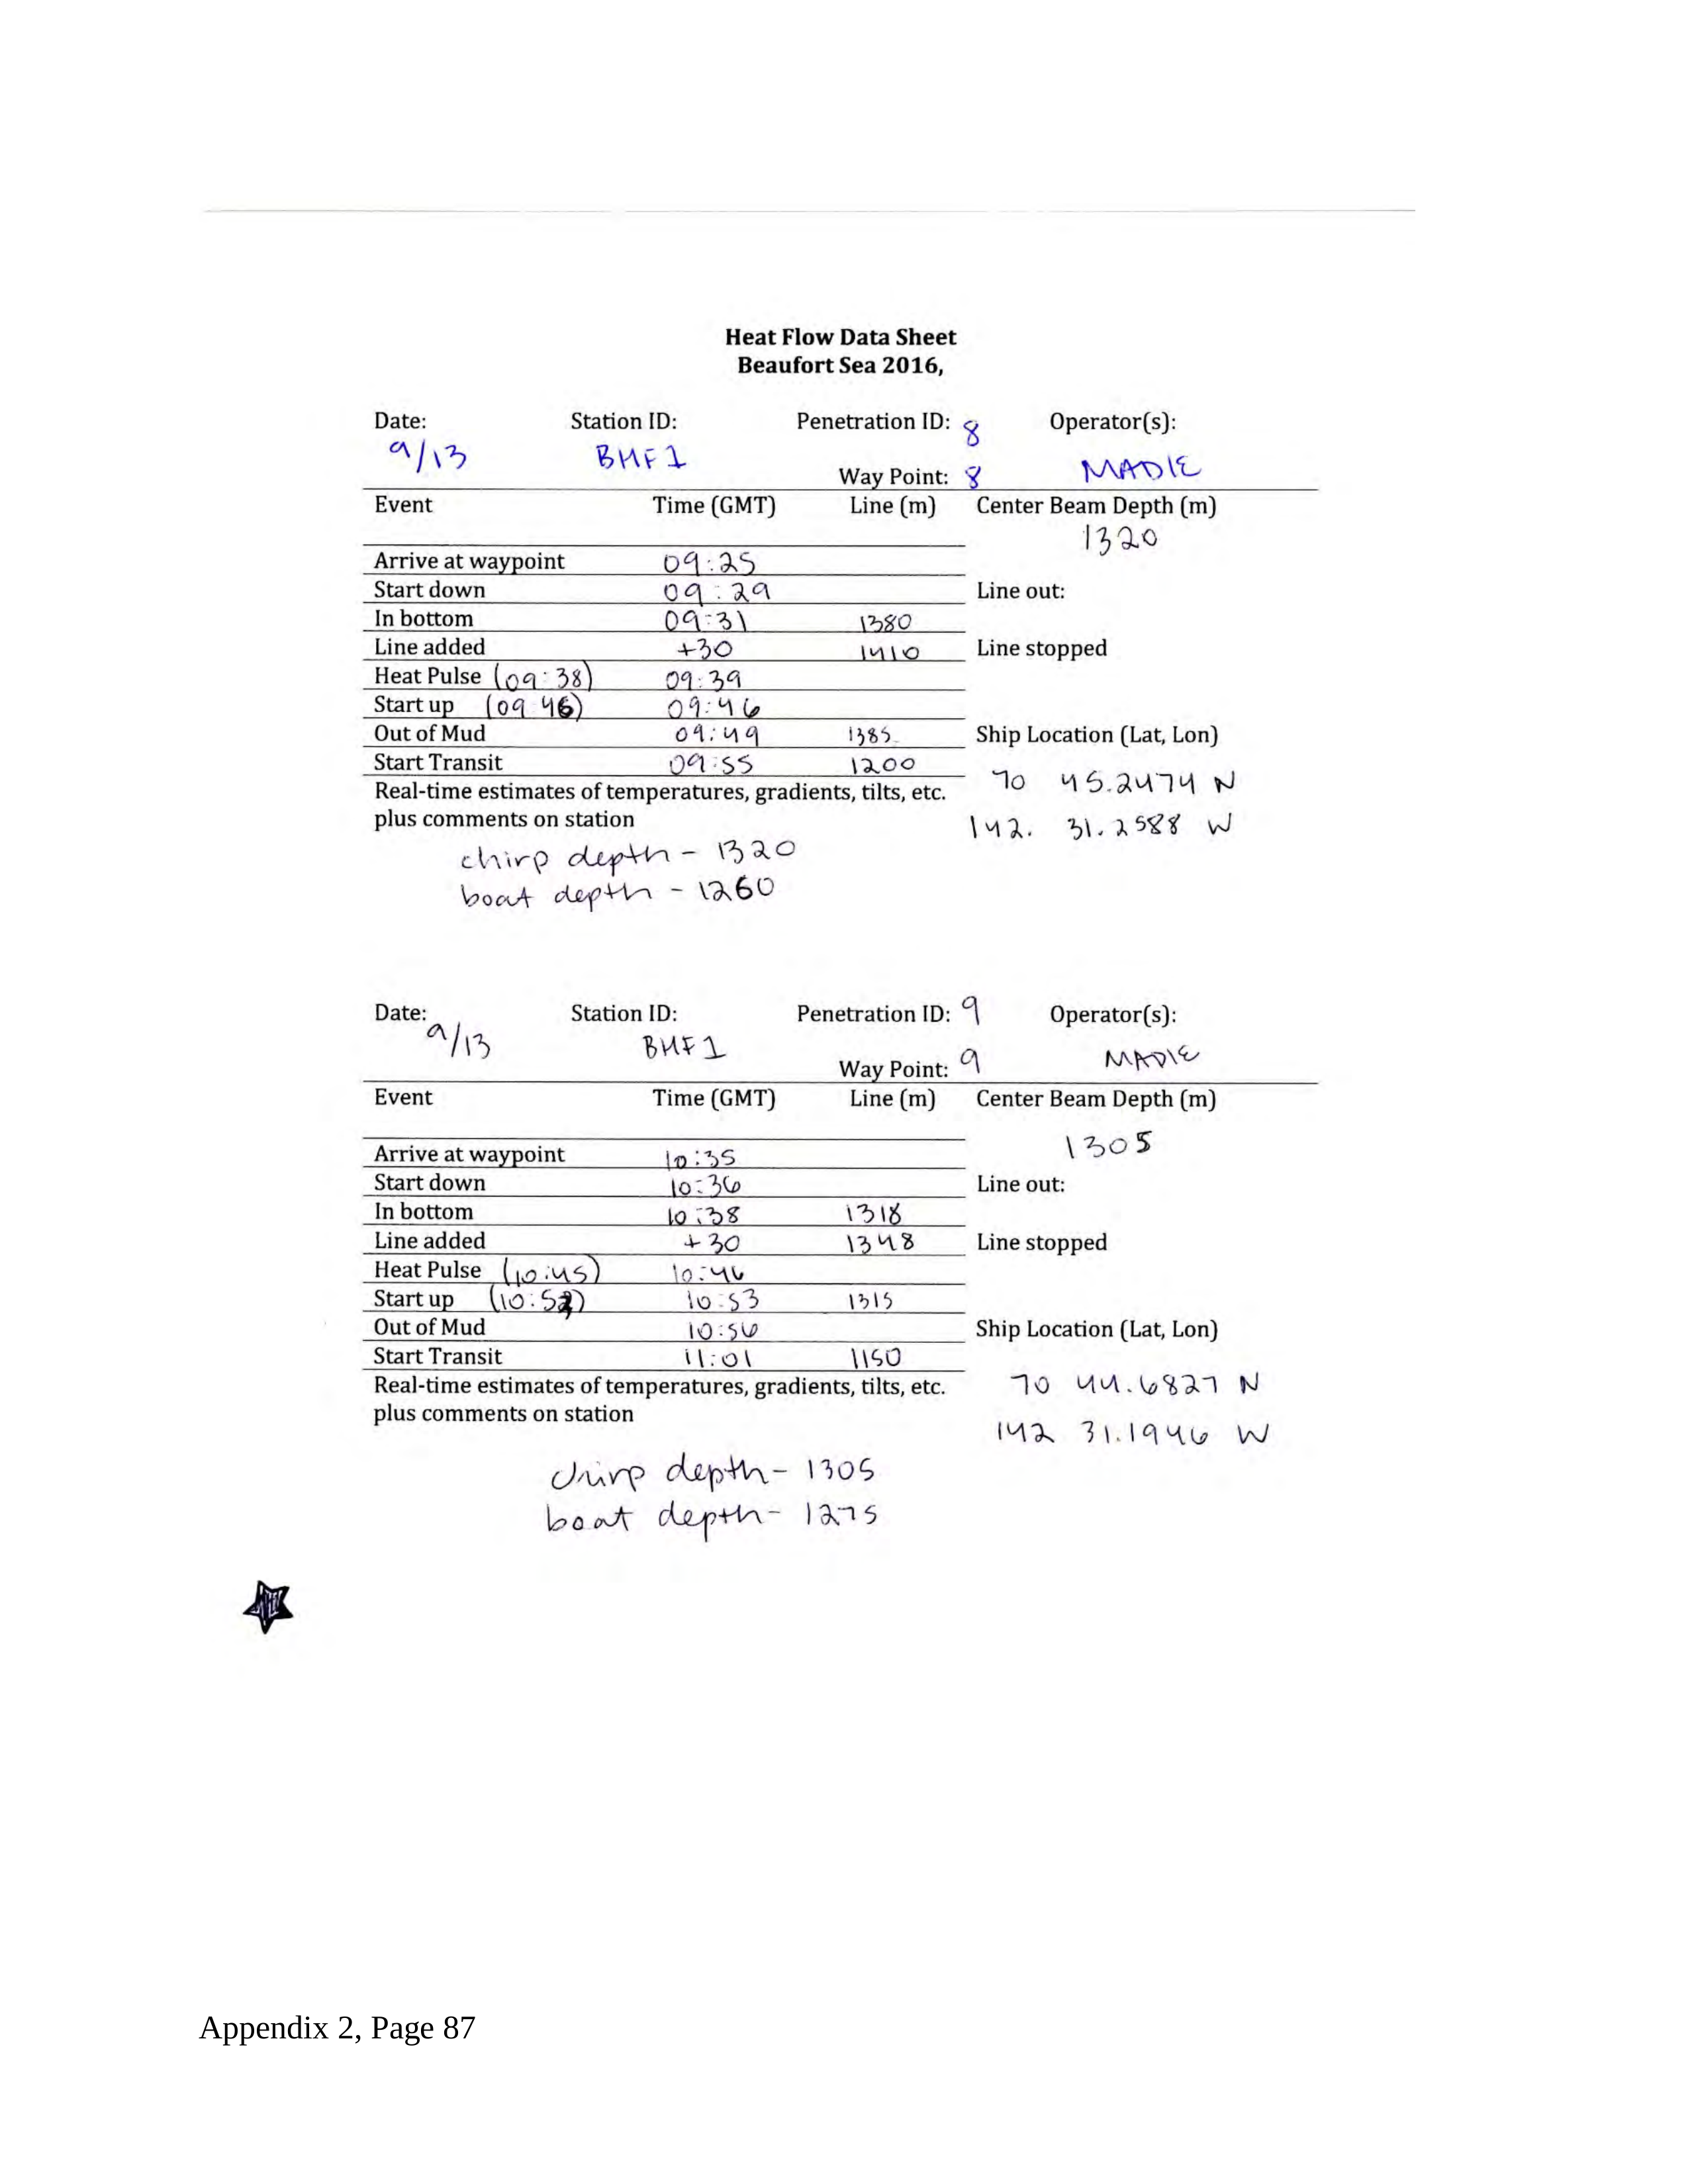 Heat Flow Data Sheet
Beaufort Sea 2016,
Date: Station ID: Penetration ID: 8 Operator(s):
9/13 BHF1 MADIE
Way Point: 8
Event Time (GMT) Line (m) Center Beam Depth (m)
1320
Arrive at waypoint 09:25
Start down 09:29 Line out:
In bottom 09:31 1380
Line added +30 1410 Line stopped
Heat Pulse (09:38) 09:39
Start up (09:46) 09:46
Out of Mud 09:49 1385 Ship Location (Lat, Lon)
Start Transit 09:55 1200
Real-time estimates of temperatures, gradients, tilts, etc. 70 45.2474 N
plus comments on station 142. 31.2588 W
chirp depth - 1320
boat depth - 1260
Date: Station ID: Penetration ID: 9 Operator(s):
9/13 BHF1 MADIE
Way Point: 9
Event Time (GMT) Line (m) Center Beam Depth (m)
1305
Arrive at waypoint 10:35
Start down 10:36 Line out:
In bottom 10:38 1318
Line added +30 1348 Line stopped
Heat Pulse (10:45) 10:46
Start up 10:53 1315
Out of Mud 10:56 Ship Location (Lat, Lon)
Start Transit 11:01 1150
Real-time estimates of temperatures, gradients, tilts, etc. 70 44.6827 N
plus comments on station 142 31.1946 W
chirp depth - 1305
boat depth - 1275
Appendix 2, Page 87